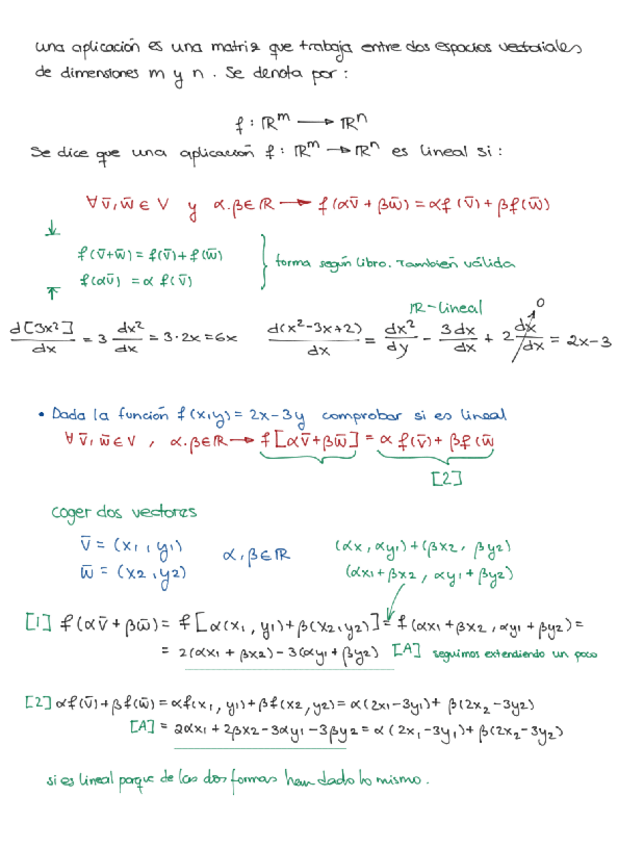 una aplicación es una matriz que trabaja entre dos espacios vectoriales
de dimensiones m y n. Se denota por:
f: ℝᵐ → ℝⁿ
Se dice que una aplicación f: ℝᵐ → ℝⁿ es lineal si:
∀ v̄, w̄ ∈ V y α.β∈ℝ → f(αv̄ + βw̄) = αf(v̄) + βf(w̄)
f(v̄+w̄) = f(v̄) + f(w̄)
f(αv̄) = α f(v̄)
forma según libro. También válida
ℝ-lineal
d[3x²]/dx = 3 dx²/dx = 3·2x = 6x
d(x²-3x+2)/dx = dx²/dy - 3dx/dx + 2 dx/dx = 2x-3
1 0
• Dada la función f(x,y) = 2x-3y comprobar si es lineal
∀ v̄, w̄ ∈ V , α.β∈ℝ → f[αv̄+βw̄] = α f(v̄) + βf(w̄
[2]
coger dos vectores
v̄ = (x₁, y₁)
w̄ = (x2, y2)
α, β∈ℝ
(αx, αy₁) + (βx2, βy2)
(αx₁+βx2, αy₁+βy2)
[1] f(αv̄ + βw̄) = f[α(x₁, y₁)+β(x2,y2)] = f(αx₁+βx2, αy₁+βy2) =
= 2(αx₁ + βx2) - 3(αy₁ + βy2) [A] seguimos extendiendo un poco
[2] αf(v̄)+βf(w̄) = αf(x₁, y₁)+βf(x2,y2) = α(2x₁-3y₁) + β(2x₂-3y2)
[A] = 2αx₁ + 2βx2 - 3αy₁ - 3βy2 = α(2x₁-3y₁) + β(2x₂-3y₂)
si es lineal porque de las dos formas han dado lo mismo.